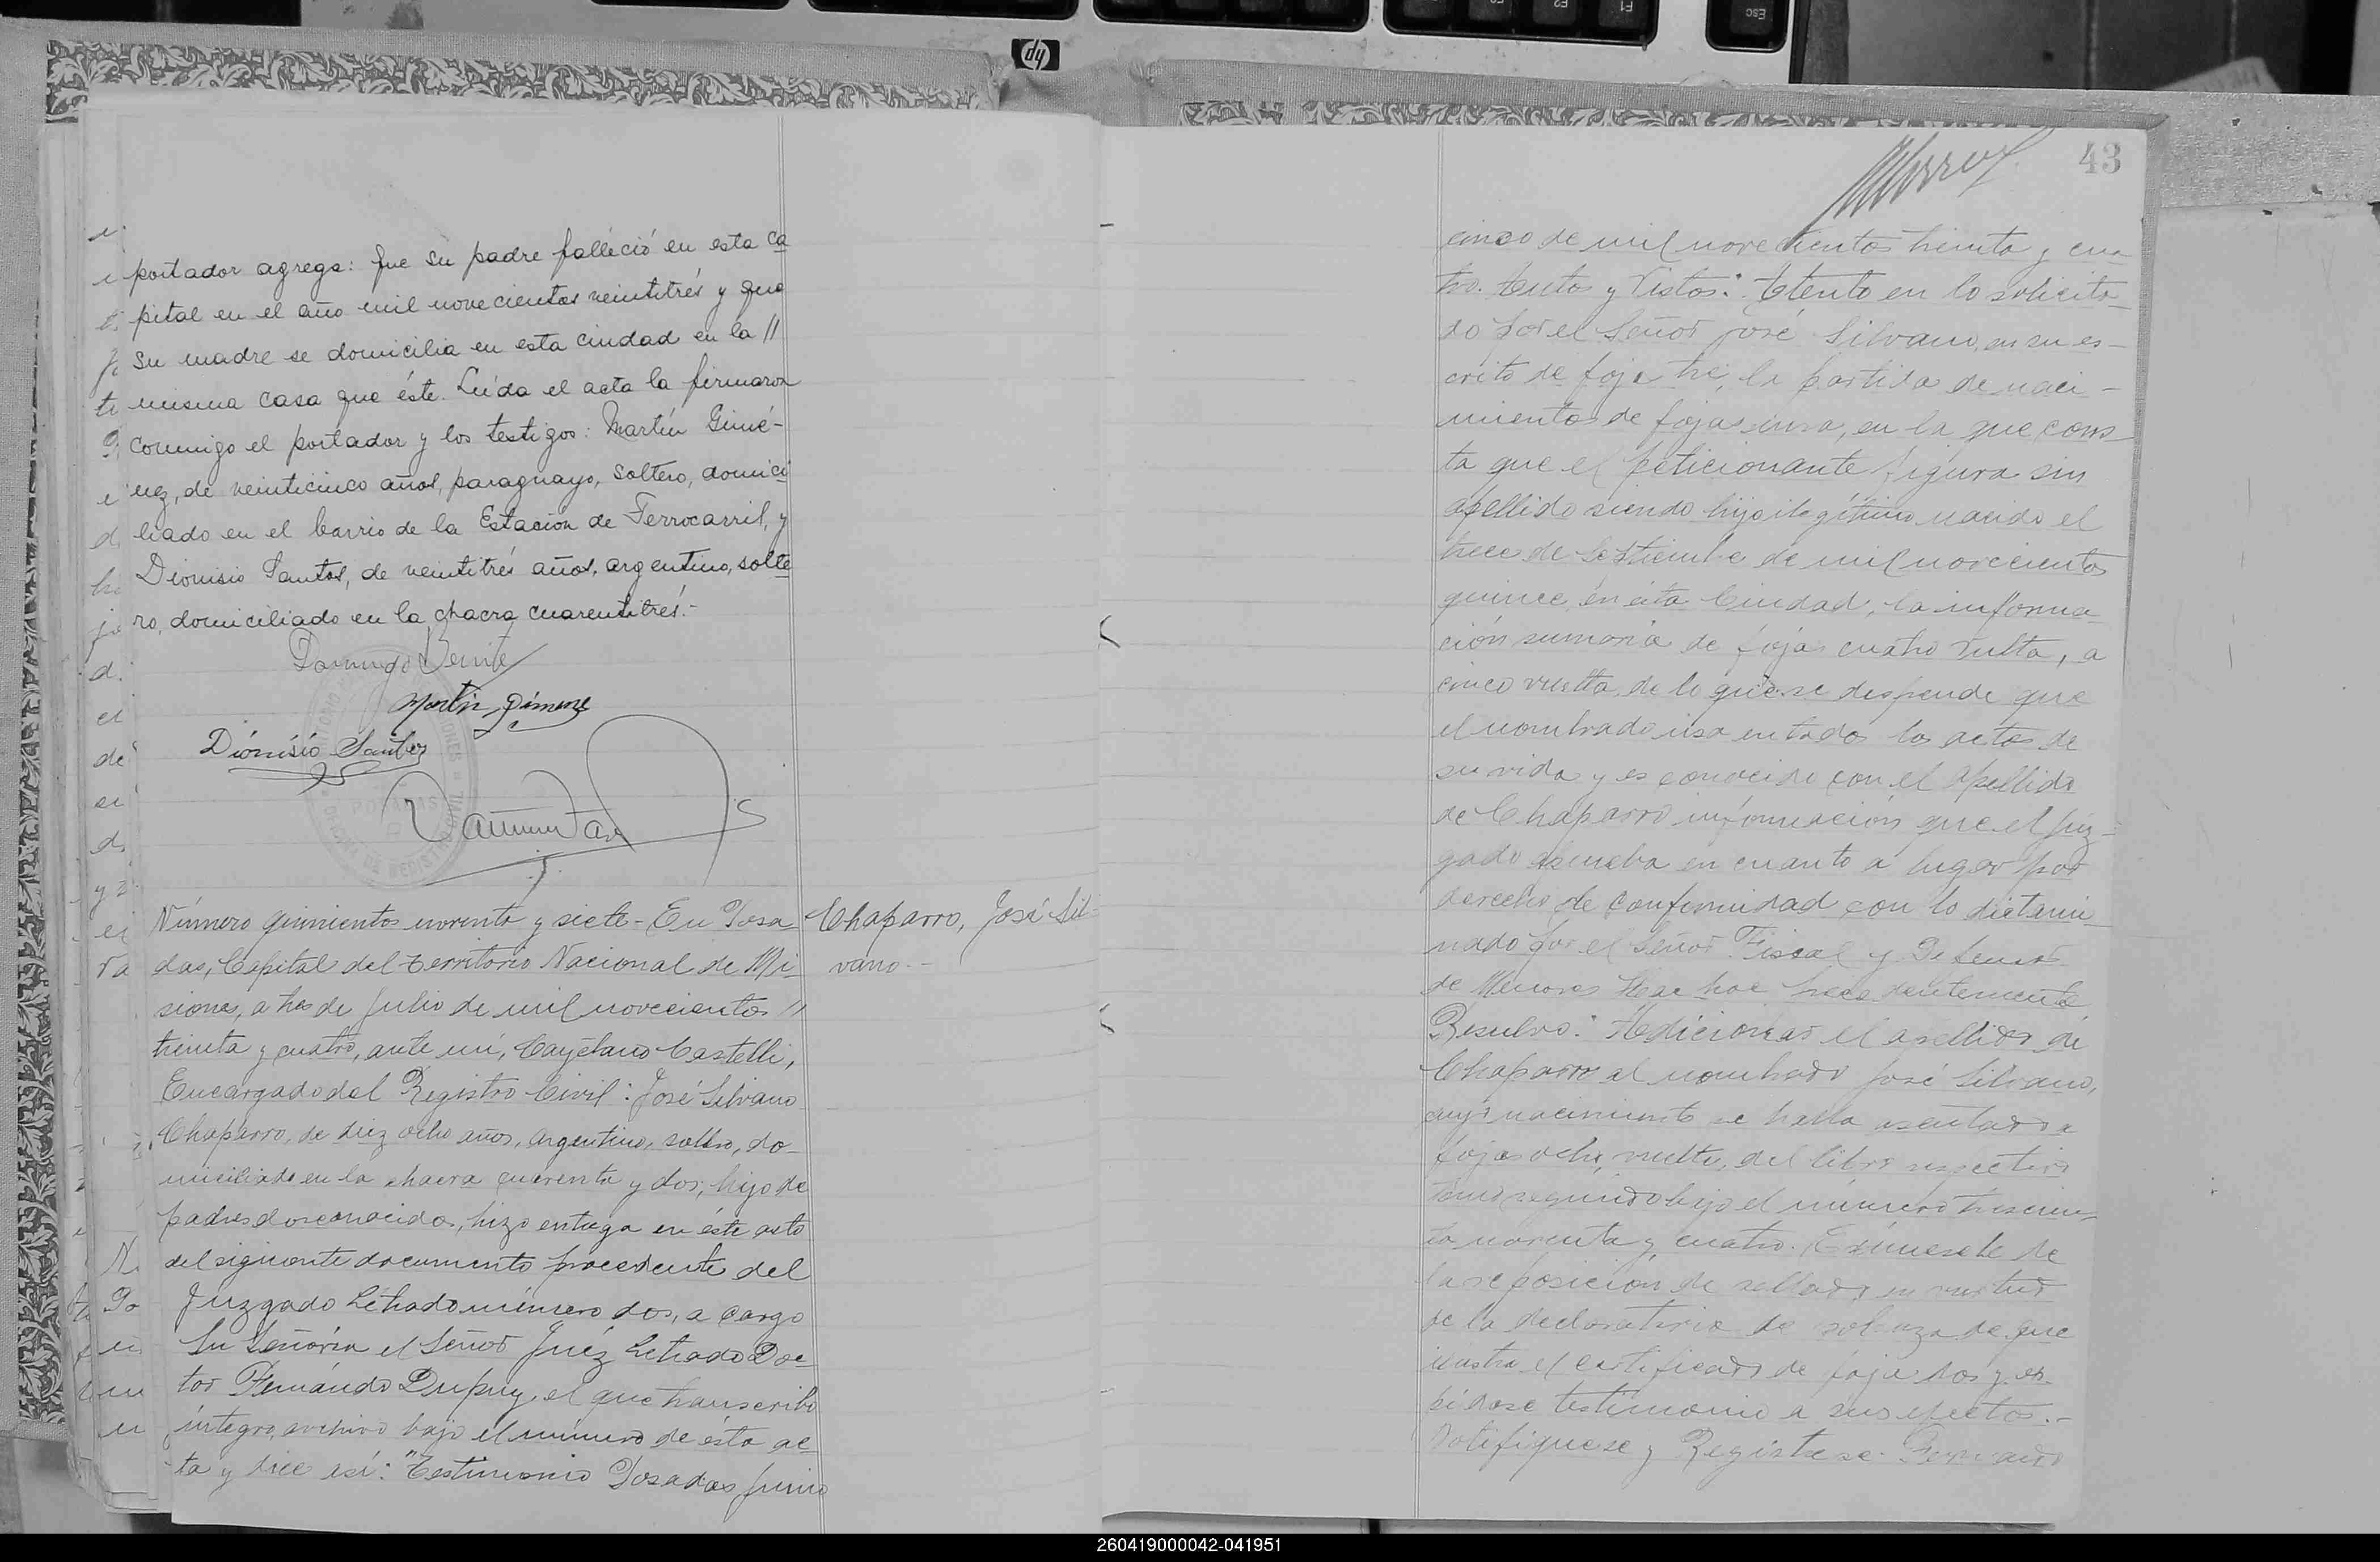 portador agrega: que su padre falleció en esta ca
pital en el año mil novecientos veintitrés y que
su madre se domicilia en esta ciudad en la //
misma casa que éste. Leída el acta la firmaron
conmigo el portador y los testigos: Martín Gimé-
nez, de veinticinco años, paraguayo, soltero, domici
liado en el barrio de la Estación de Ferrocarril, y
Dionisio Santos, de veintitrés años, argentino, solte
ro, domiciliado en la chacra cuarentitrés.-
Domingo Benite
Martin Gimenez
Dionisio Santos
POSADAS
Número quinientos noventa y siete - En Posa
das, Capital del Territorio Nacional de Mi
siones, a tres de Julio de mil novecientos //
treinta y cuatro, ante mí, Cayetano Castelli,
Encargado del Registro Civil: José Silvano
Chaparro, de diez ocho años, argentino, soltero, do-
miciliado en la chacra cuarenta y dos, hijo de
padres desconocidos, hizo entrega en éste acto
del siguiente documento procedente del
Juzgado Letrado número dos, a cargo
Su Señoría el Señor Juéz Letrado Doc
tor Fernándo Dupuy, el que transcribo
íntegro, archivo bajo el número de ésta ac
ta y dice así: "Testimonio Posadas Junio
Chaparro, José Sil-
vano.-
43
cinco de mil novecientos treinta y cua
tro. Autos y Vistos: Atento en lo solicita
do por el Señor José Silvano, en su es-
crito de foja tres, la partida de naci-
miento de fojas una, en la que cons
ta que el peticionante figura sin
apellido siendo hijo ilegítimo nacido el
trece de Septiembre de mil novecientos
quince, en ésta Ciudad, la informa
ción sumaria de fojas cuatro vuelta, a
cinco vuelta, de lo que se desprende que
el nombrado usa en todos los actos de
su vida y es conocido con el apellido
de Chaparro información que el juz-
gado aprueba en cuanto a lugar por
derecho de conformidad con lo dictami
nado por el Señor Fiscal y Defensor
de Menores precedentemente
Resuelvo: Adicionar el apellido de
Chaparro al nombrado José Silvano,
cuyo nacimiento se halla asentado a
fojas ocho, vuelta, del libro respectivo
tomo segundo bajo el número trescien
to noventa y cuatro. Exímesele de
la reposición de sellado en virtud
de la declaratoria de pobreza de que
ilustra el certificado de foja dos y ex
pídase testimonio a sus efectos.-
Notifíquese y Regístrese. Fernando
260419000042-041951